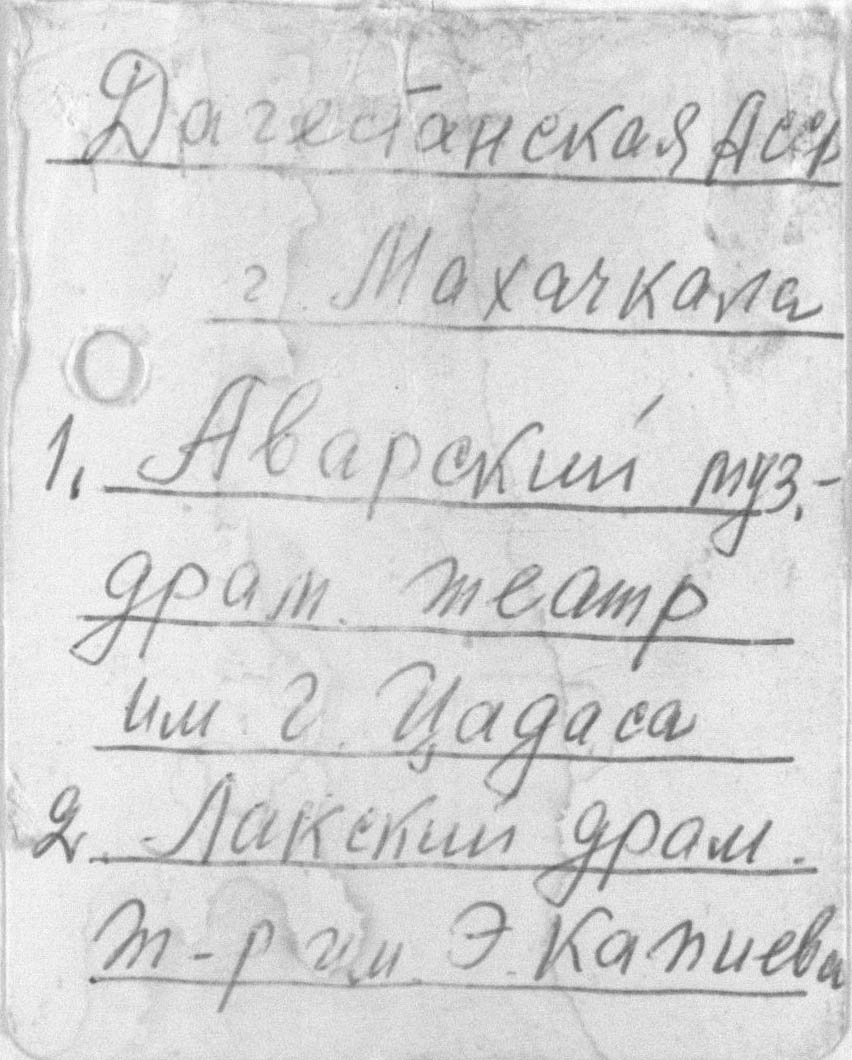 Дагестанская Асср
г. Махачкала
1. Аварский муз.-
драм. театр
им. Г. Цадаса
2. Лакский драм.
т-р им. Э. Капиева